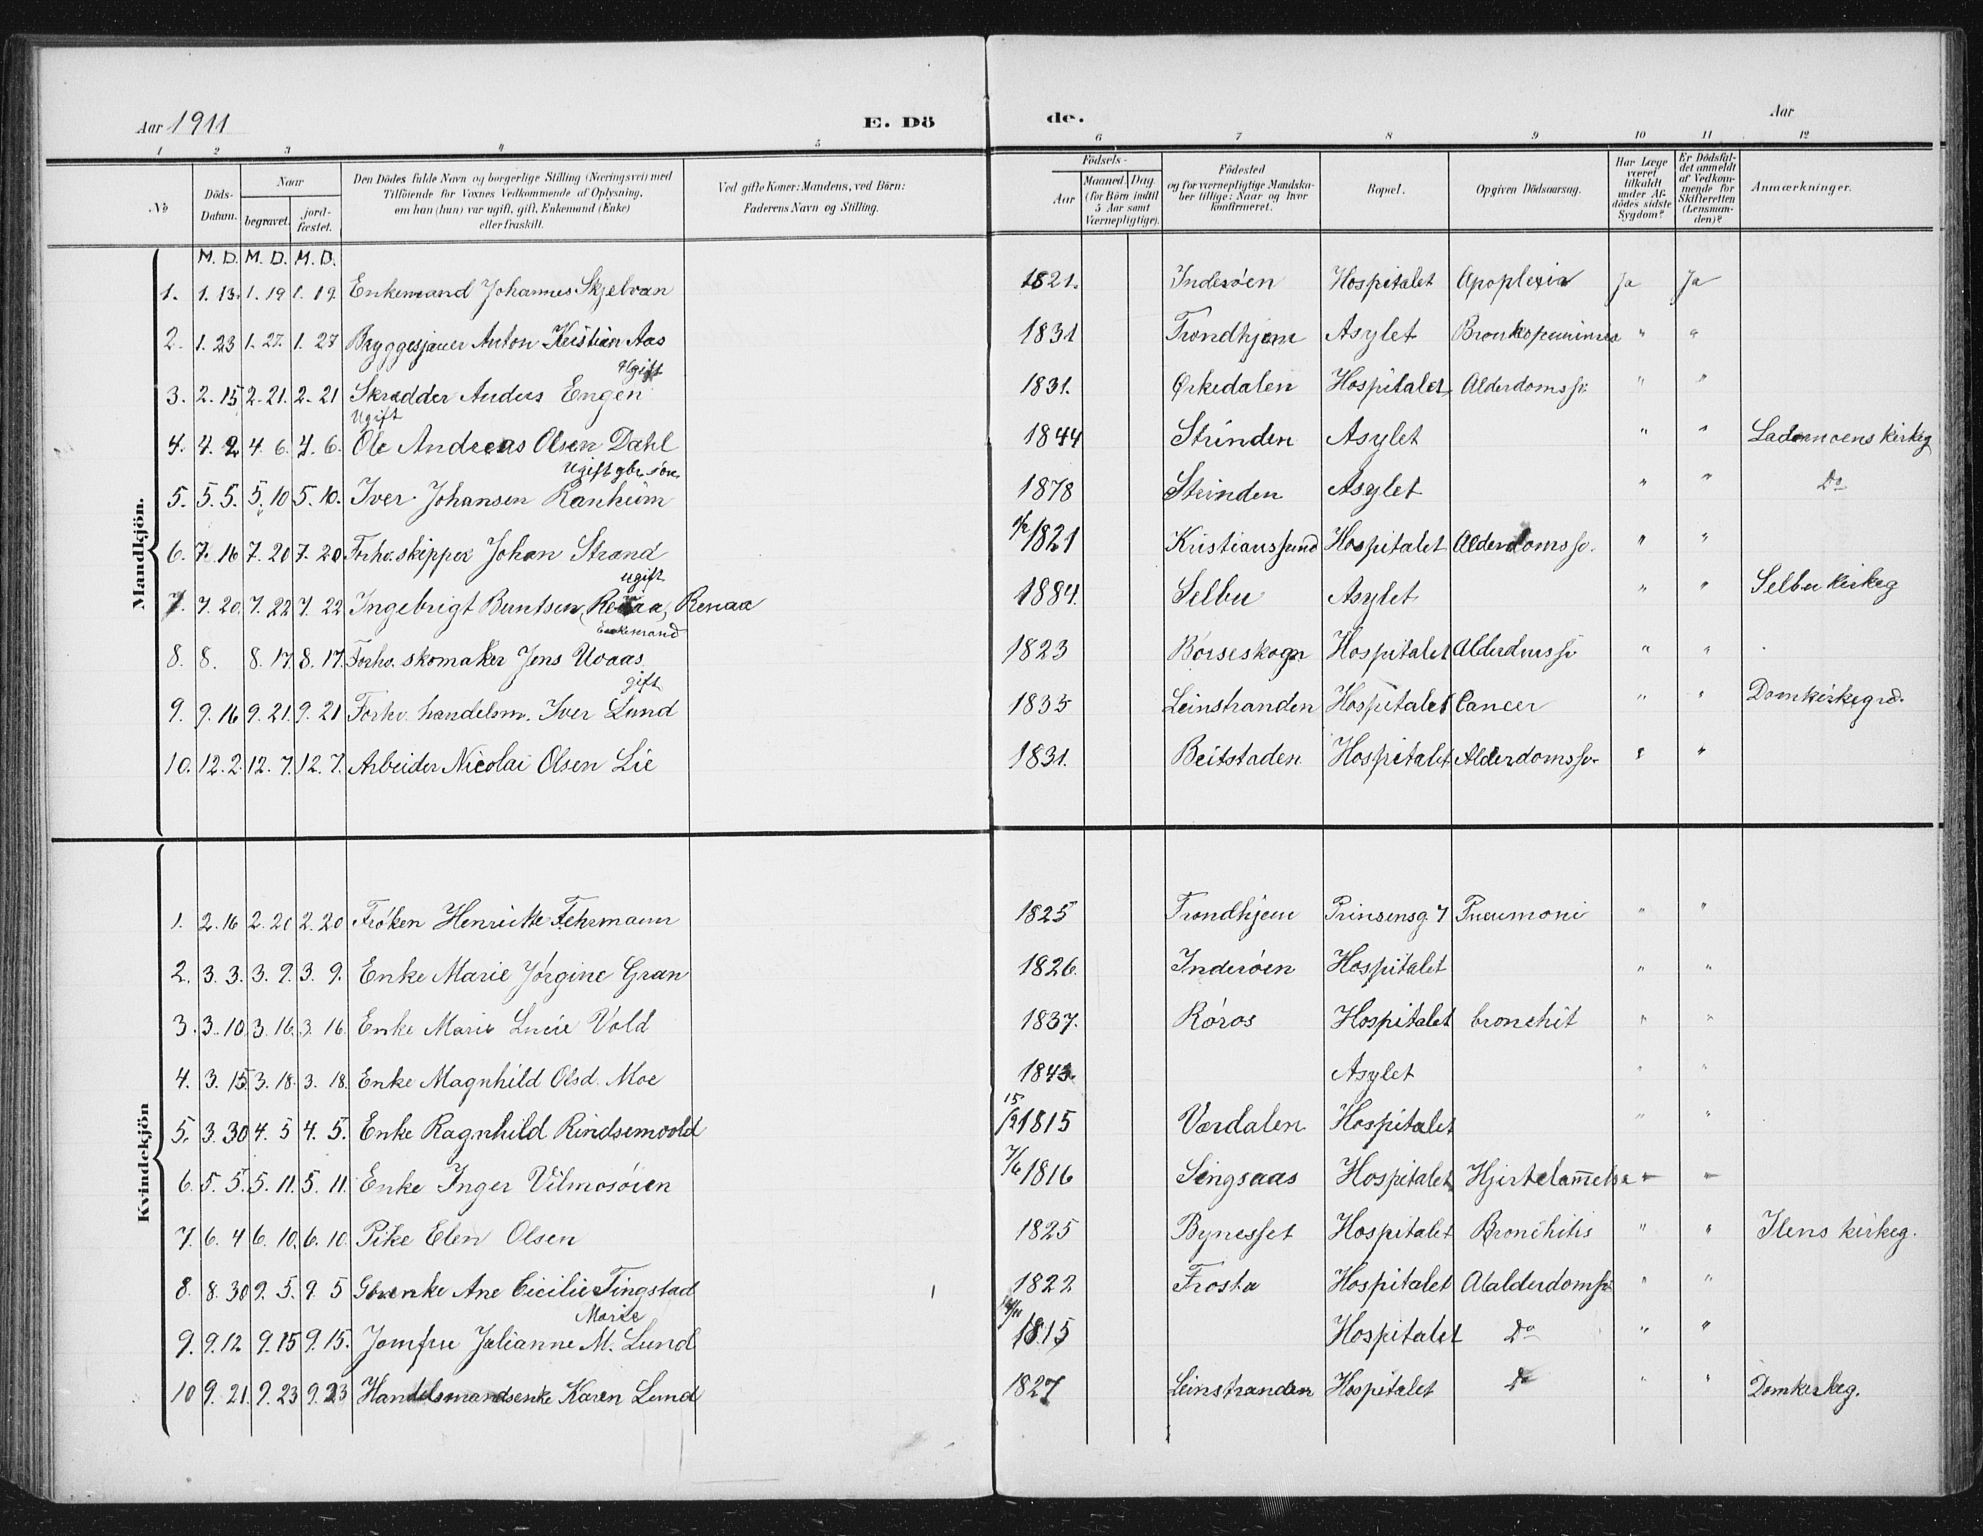 Aar 1911 E. Dö de. Aar
1 2 3 4 5 6 7 8 9 10 11 12
No
Döds-Datum.
Naar
begravet. jord-fæstet.
Den Dödes fulde Navn og borgerlige Stilling (Næringsvei) med
Tilföiende for Voxnes Vedkommende af Oplysning,
om han (hun) var ugift, gift, Enkemand (Enke)
eller fraskilt.
Ved gifte Koner: Mandens, ved Börn:
Faderens Navn og Stilling.
Födsels-
Aar Maaned. Dag.
(for Börn indtil
5 Aar samt
Værnepligtige).
Födested
og for værnepligtige Mandska-
ber tillige: Naar og hvor
konfirmeret.
Bopæl.
Opgiven Dödsaarsag.
Har Læge
været
tilkaldt
under Af-
dödes sidste
Sygdom?
Er Dödsfal-
det anmeldt
af Vedkom-
mende for
Skifteretten
(Lensman-
den)?
Anmærkninger.
M. D. M. D. M. D.
Mandkjön.
1. 1. 13. 1. 19 1. 19. Enkemand Johannes Skjelvan 1821. Inderöen Hospitalet Apoplexia Ja Ja
2. 1. 23 1. 27. 1. 27 Bryggesjauer Anton Kristian Aas 1831 Trondhjem Asylet " "
Ugift
3. 2. 15 2. 21. 2. 21 Skrædder Anders Engen 1831. Örkedalen Hospitalet Alderdomssv. " "
Ugift
4. 4. 2 4. 6. 4. 6. Ole Andreas Olsen Dahl 1844 Strinden Asylet " " Lademoens kirkeg
Ugift gbr. sön
5. 5. 5. 5. 10 5. 10. Iver Johansen Ranheim 1878 Strinden Asylet " " Do
6. 7. 16 7. 20 7. 20 Forhv. skipper Johan Strand 1821 Kristianssund Hospitalet Alderdomssv. " "
ugift
7. 7. 20. 7. 22 7. 22 Ingebrigt Buntsen Renaa, Renaa 1884. Selbu Asylet " " Selbu kirkeg
Enkemand
8. 8. 8. 17. 8. 17. Forhv. skomaker Jens Uvaas 1823 Börseskogn Hospitalet " "
gift
9. 9. 16 9. 21. 9. 21 Forhv. handelsm. Iver Lund 1835 Leinstranden Hospitalet Cancer " " Domkirkegrd.
10. 12. 2. 12. 7. 12. 7. Arbeider Nicolai Olsen Lie 1831. Beitstaden Hospitalet Alderdomssv. " "
Kvindekjön
1. 2. 16 2. 20 2. 20 Fröken Henrikke Fehrmann 1825 Trondhjem Prinsensg. 7 Pneumoni " "
2. 3. 3. 3. 9. 3. 9. Enke Marie Jörgine Gran 1826. Inderöen Hospitalet " "
3. 3. 10. 3. 16. 3. 16. Enke Marie Lucie Vold 1837. Röros Hospitalet bronchit " "
4. 3. 15 3. 18. 3. 18. Enke Magnhild Olsd. Moe 1843. Asylet " "
5. 3. 30 4. 5 4. 5. Enke Ragnhild Rindsemvold 1815 Værdalen Hospitalet " "
6. 5. 5. 5. 11. 5. 11. Enke Inger Vilmosöien 7/6 1816 Singsaas Hospitalet Hjertelammelse " "
7. 6. 4 6. 10. 6. 10. Pike Elen Olsen 1825 Bynesset Hospitalet Bronchitis " " Ilens kirkeg.
8. 8. 30 9. 5. 9. 5 Gbr.enke Ane Cicilie Tingstad 1822 Frosta Hospitalet Alalderdomssv. " "
Marie
9. 9. 12 9. 15 9. 15. Jomfru Julianne M. Lund 1815 Hospitalet Do " "
10 9. 21. 9. 23 9. 23 Handelsmandsenke Karen Lund 1827 Leinstranden Hospitalet Do " " Domkirkeg.